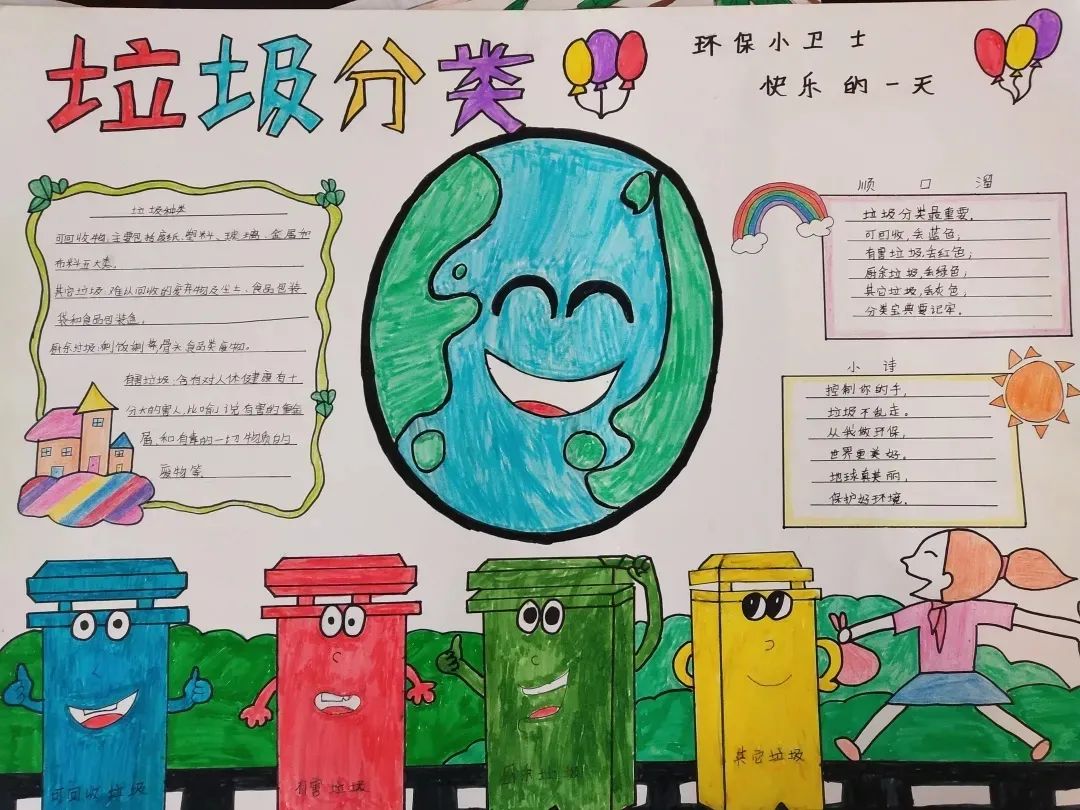 垃圾分类
环保小卫士
快乐的一天
垃圾种类
可回收物,主要包括废纸、塑料、玻璃、金属和
布料五大类.
其它垃圾、难以回收的废弃物及尘土、食品包装
袋和食品包装盒.
厨余垃圾:剩饭剩菜,骨头食品类废物。
有害垃圾、含有对人体健康有十
分大的害人,比喻
说有害的重金
属、和有毒的一切物质的
废物等.
顺口溜
垃圾分类最重要.
可回收,丢蓝色;
有害垃圾,丢红色;
厨余垃圾,丢绿色;
其它垃圾,丢灰色;
分类宝典要记牢.
小诗
控制你的手,
垃圾不乱走。
从我做环保,
世界更美好.
地球真美丽,
保护好环境.
可回收垃圾
有害垃圾
厨余垃圾
其它垃圾